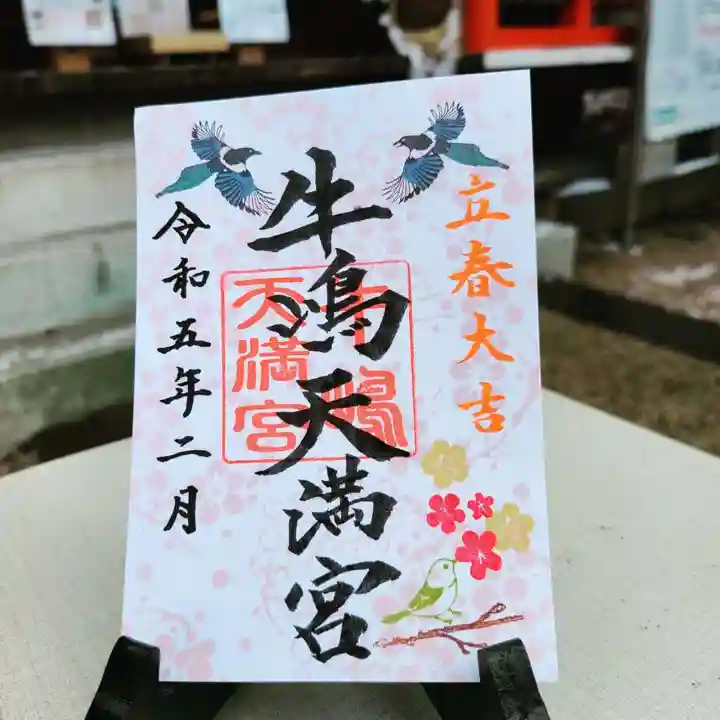 立春大吉
牛嶋天満宮
牛嶋
天満宮
令和五年二月